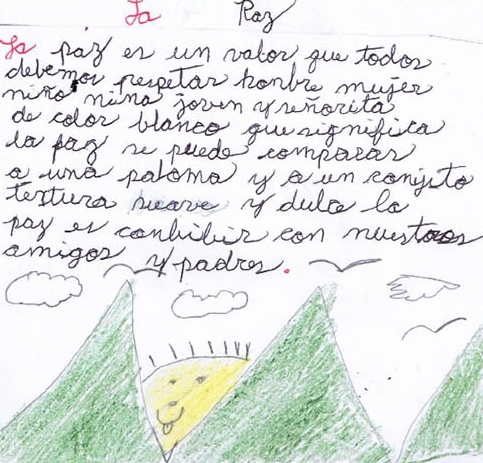 La Paz
La paz es un valor que todos
debemos respetar honbre mujer
niño nina joven y señorita
de color blanco que significa
la paz se puede comparar
a una paloma y a un conejito
textura suave y dulce la
paz es conbibir con nuestros
amigos y padres.